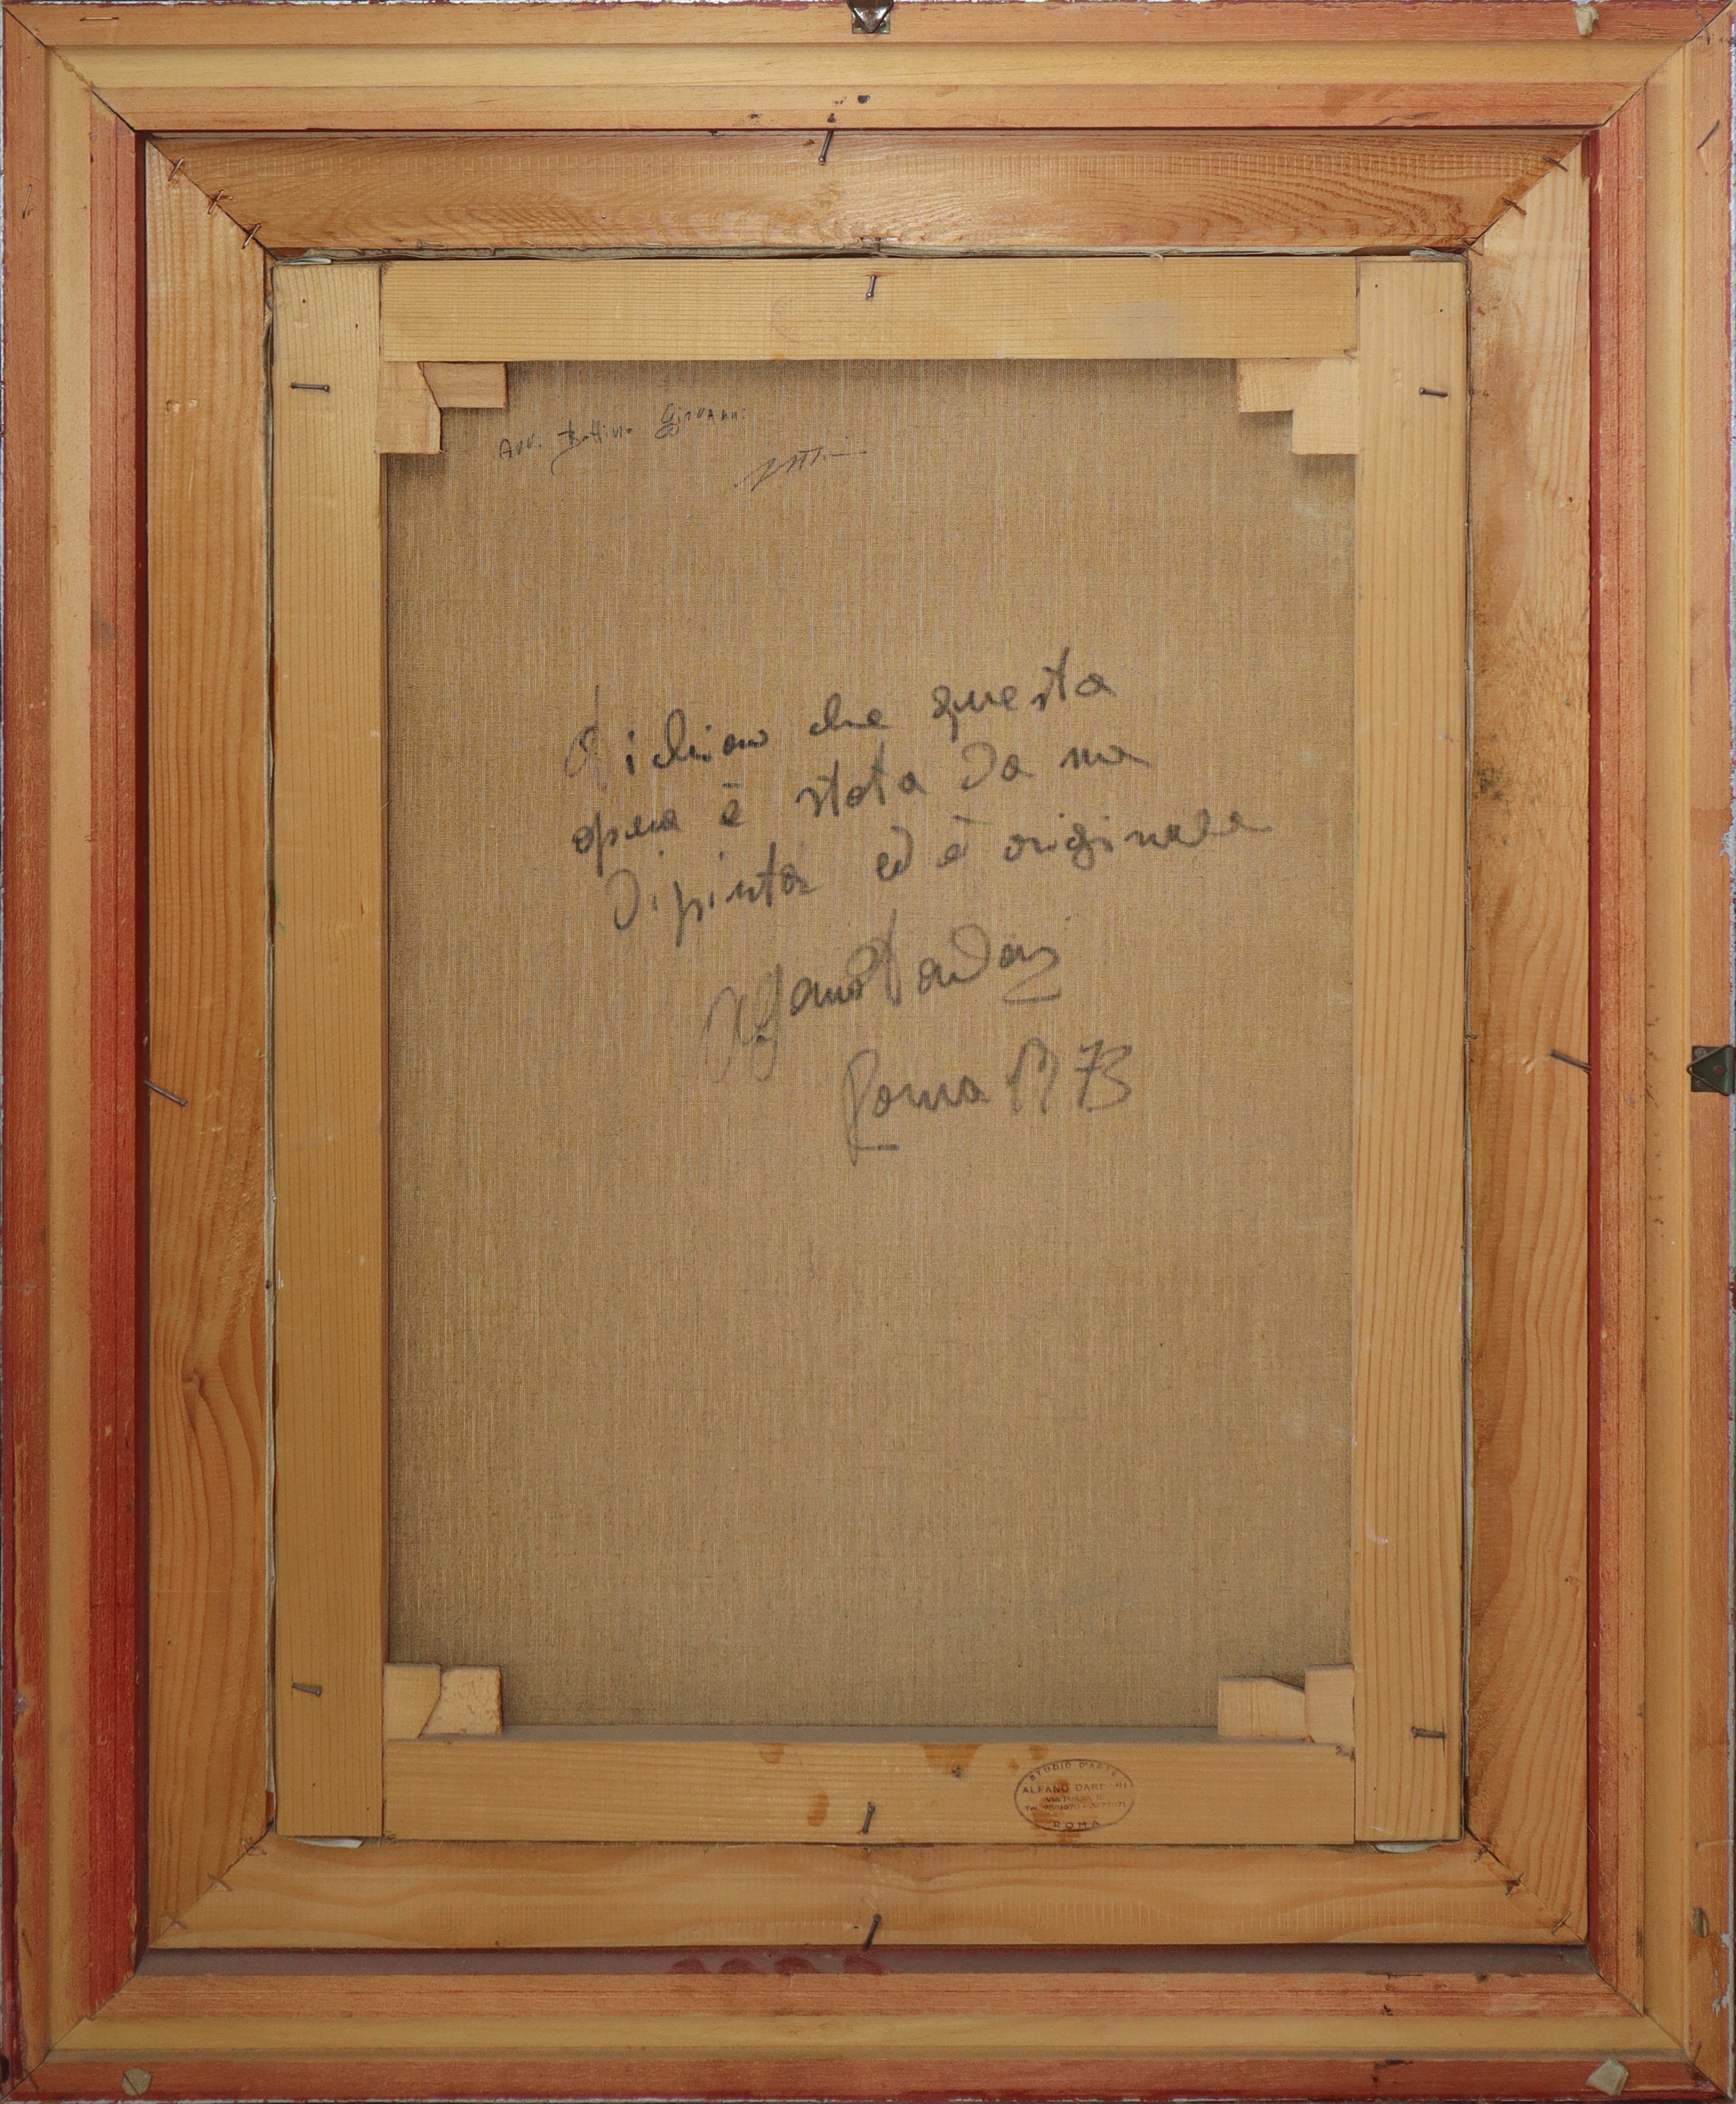 Avv. Bottino Giovanni
Dichiaro che questa
opera è stata da me
dipinta ed è originale
Alfano Dardari
Roma 1973
STUDIO D'ARTE
ALFANO DARDARI
ROMA